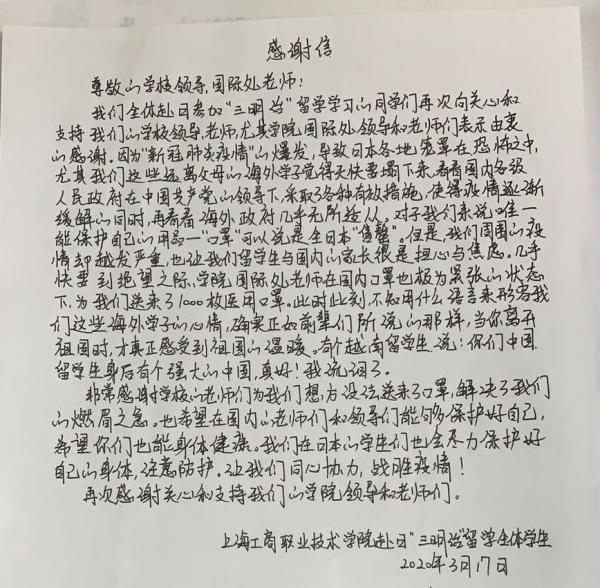 感谢信
尊敬的学校领导,国际处老师:
我们全体赴日参加“三明治”留学学习的同学们再次向关心和
支持我们的学校领导,老师尤其学院国际处领导和老师们表示由衷
的感谢。因为“新冠肺炎疫情”的爆发,导致日本各地笼罩在恐怖之中,
尤其我们这些远离父母的海外学子觉得天快要塌下来,看看国内各级
人民政府在中国共产党的领导下,采取了各种有效措施,使得疫情逐渐
缓解的同时,再看看海外政府几乎无所适从。对于我们来说唯一
能保护自己的用品—“口罩”可以说是全日本“售罄”。但是,我们周围的疫
情却越发严重,也让我们留学生与国内的家长很是担心与焦虑。几乎
快要到绝望之际,学院国际处老师在国内口罩也极为紧张的状态
下,为我们送来了1000枚医用口罩。此时此刻,不知用什么语言来形容我
们这些海外学子的心情,确实正如前辈们所说的那样,当你离开
祖国时,才真正感受到祖国的温暖。有个越南留学生说:你们中国
留学生身后有个强大的中国,真好!我说泪了。
非常感谢学校的老师们为我们想方设法送来了口罩,解决了我们
的燃眉之急。也希望在国内的老师们和领导们能够保护好自己,
希望你们也能身体健康。我们在日本的学生们也会尽力保护好
自己的身体,注意防护。让我们同心协力,战胜疫情!
再次感谢关心和支持我们的学院领导和老师们。
上海工商职业技术学院赴日“三明治”留学全体学生
2020年3月17日